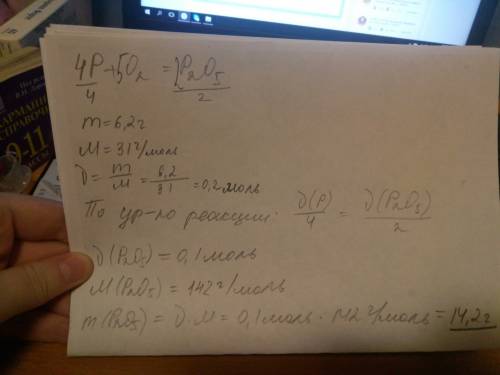 4P+5O₂ = 2P₂O₅
4 2
m=6,2г
M=31г/моль
ν= m/M = 6,2/31 =0,2моль
По ур-ю реакции: ν(P)/4 = ν(P₂O₅)/2
ν(P₂O₅)=0,1моль
M(P₂O₅)=142г/моль
m(P₂O₅)=ν·M=0,1моль·142г/моль=14,2г
СПРАВО
9-11